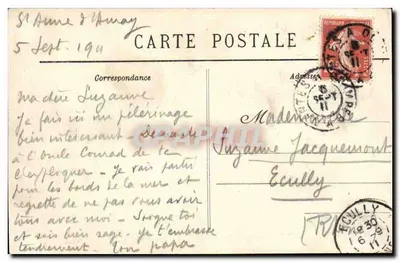 St Anne d'Auray
5 Sept. 1911
CARTE POSTALE
Correspondance
Adresse
Ma chère Suzanne
Je fais ici un pélerinage
bien intéressant - Demande
à l'Oncle Conrad de te
l'expliquer - Je vais partir
pour les bords de la mer et
regrette de ne pas vous avoir
tous avec moi - Soigne toi
et sois bien sage - Je t'embrasse
tendrement. Ton papa
Mademoiselle
Suzanne Jacquemont
Ecully
ECULLY